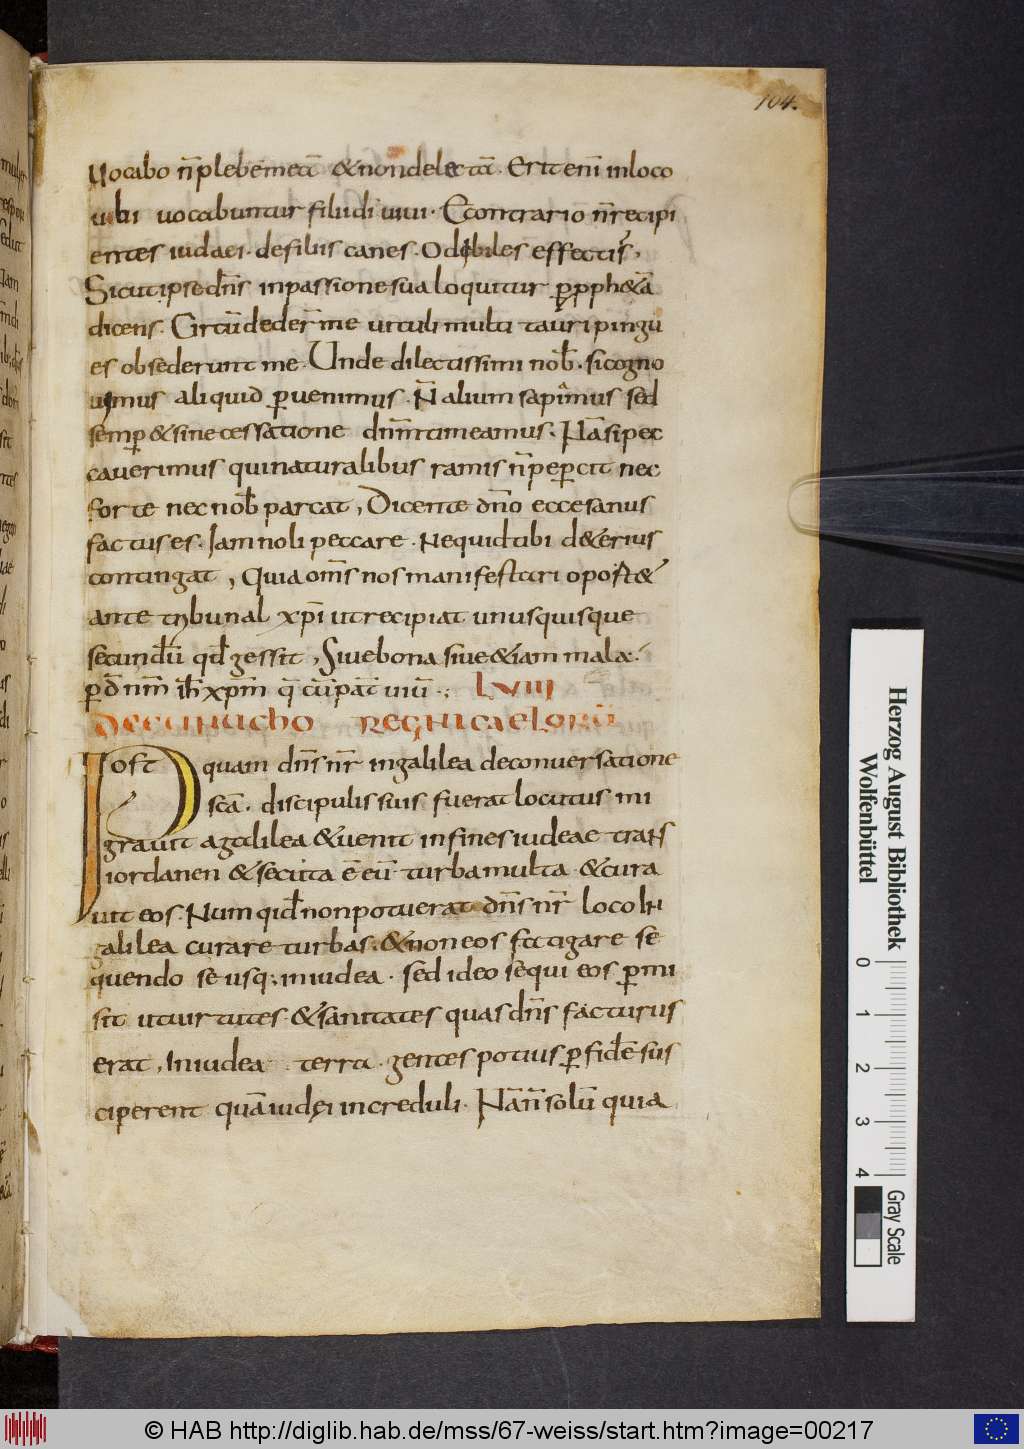 104.
Uocabo n̄ plebem meā & non delectā. Erit enī in loco
ubi uocabuntur filii di uiui. Econtrario n̄ recipi
entes iudaei. de filiis canes. Odibiles effecti s̄,
Sicut ipse dn̄s in passione sua loquitur p̱ pph&ā
dicens. Circūdeder̄ me uituli multi tauri pingu
es obsederunt me. Unde dilectissimi nob̄. si cogno
uimus aliquid ꝑuenimus. N̄ alium sapimus sed
semꝑ & sine cessatione dn̄m timeamus. Nā si pec
cauerimus qui naturalibus ramis n̄ peꝑcit nec
forte nec nob̄ parcat, Dicente dn̄o ecce sanus
factus es. Iam noli peccare. Nequid tibi d&erius
contingat, Quia om̄s nos manifestari oport&
ante tribunal xp̄i ut recipiat unusquisque
secundū qd̄ gessit, Siue bona siue &iam mala.
ꝑ dn̄m nm̄ ih̄m xp̄m q̄ cū pat̄ uiū. LVIII
Post quam dn̄s nr̄ in galilea de conuersatione
scā. discipulis suis fuerat locutus mi
grauit a galilea & uenit in fines iudeae trans
iordanen & secuta ē eū turba multa & cura
uit eos. Numqid non potuerat dn̄s nr̄ loco in
galilea curare turbas. & non eos fatigare se
quendo se usq; in iudea. sed ideo sequi eos ꝑmi
sit ut uirtutes & sanitates quas dn̄s facturus
erat, In iudea terra. gentes potius ꝑ fidē sus
ciperent quā iudęi increduli. Nā n̄ solū quia
Herzog August Bibliothek
Wolfenbüttel
0 1 2 3 4
Gray Scale
© HAB http://diglib.hab.de/mss/67-weiss/start.htm?image=00217